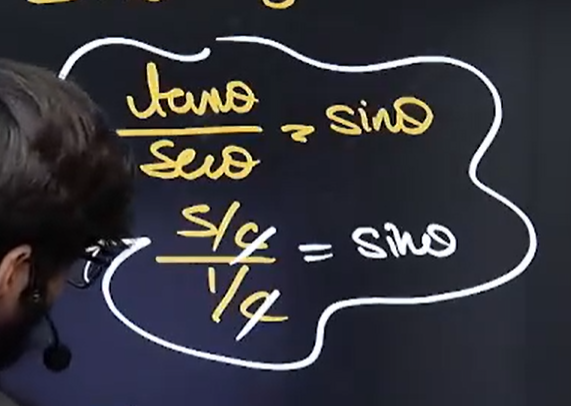 tanθ
secθ
= sinθ
s/c
1/c
= sinθ